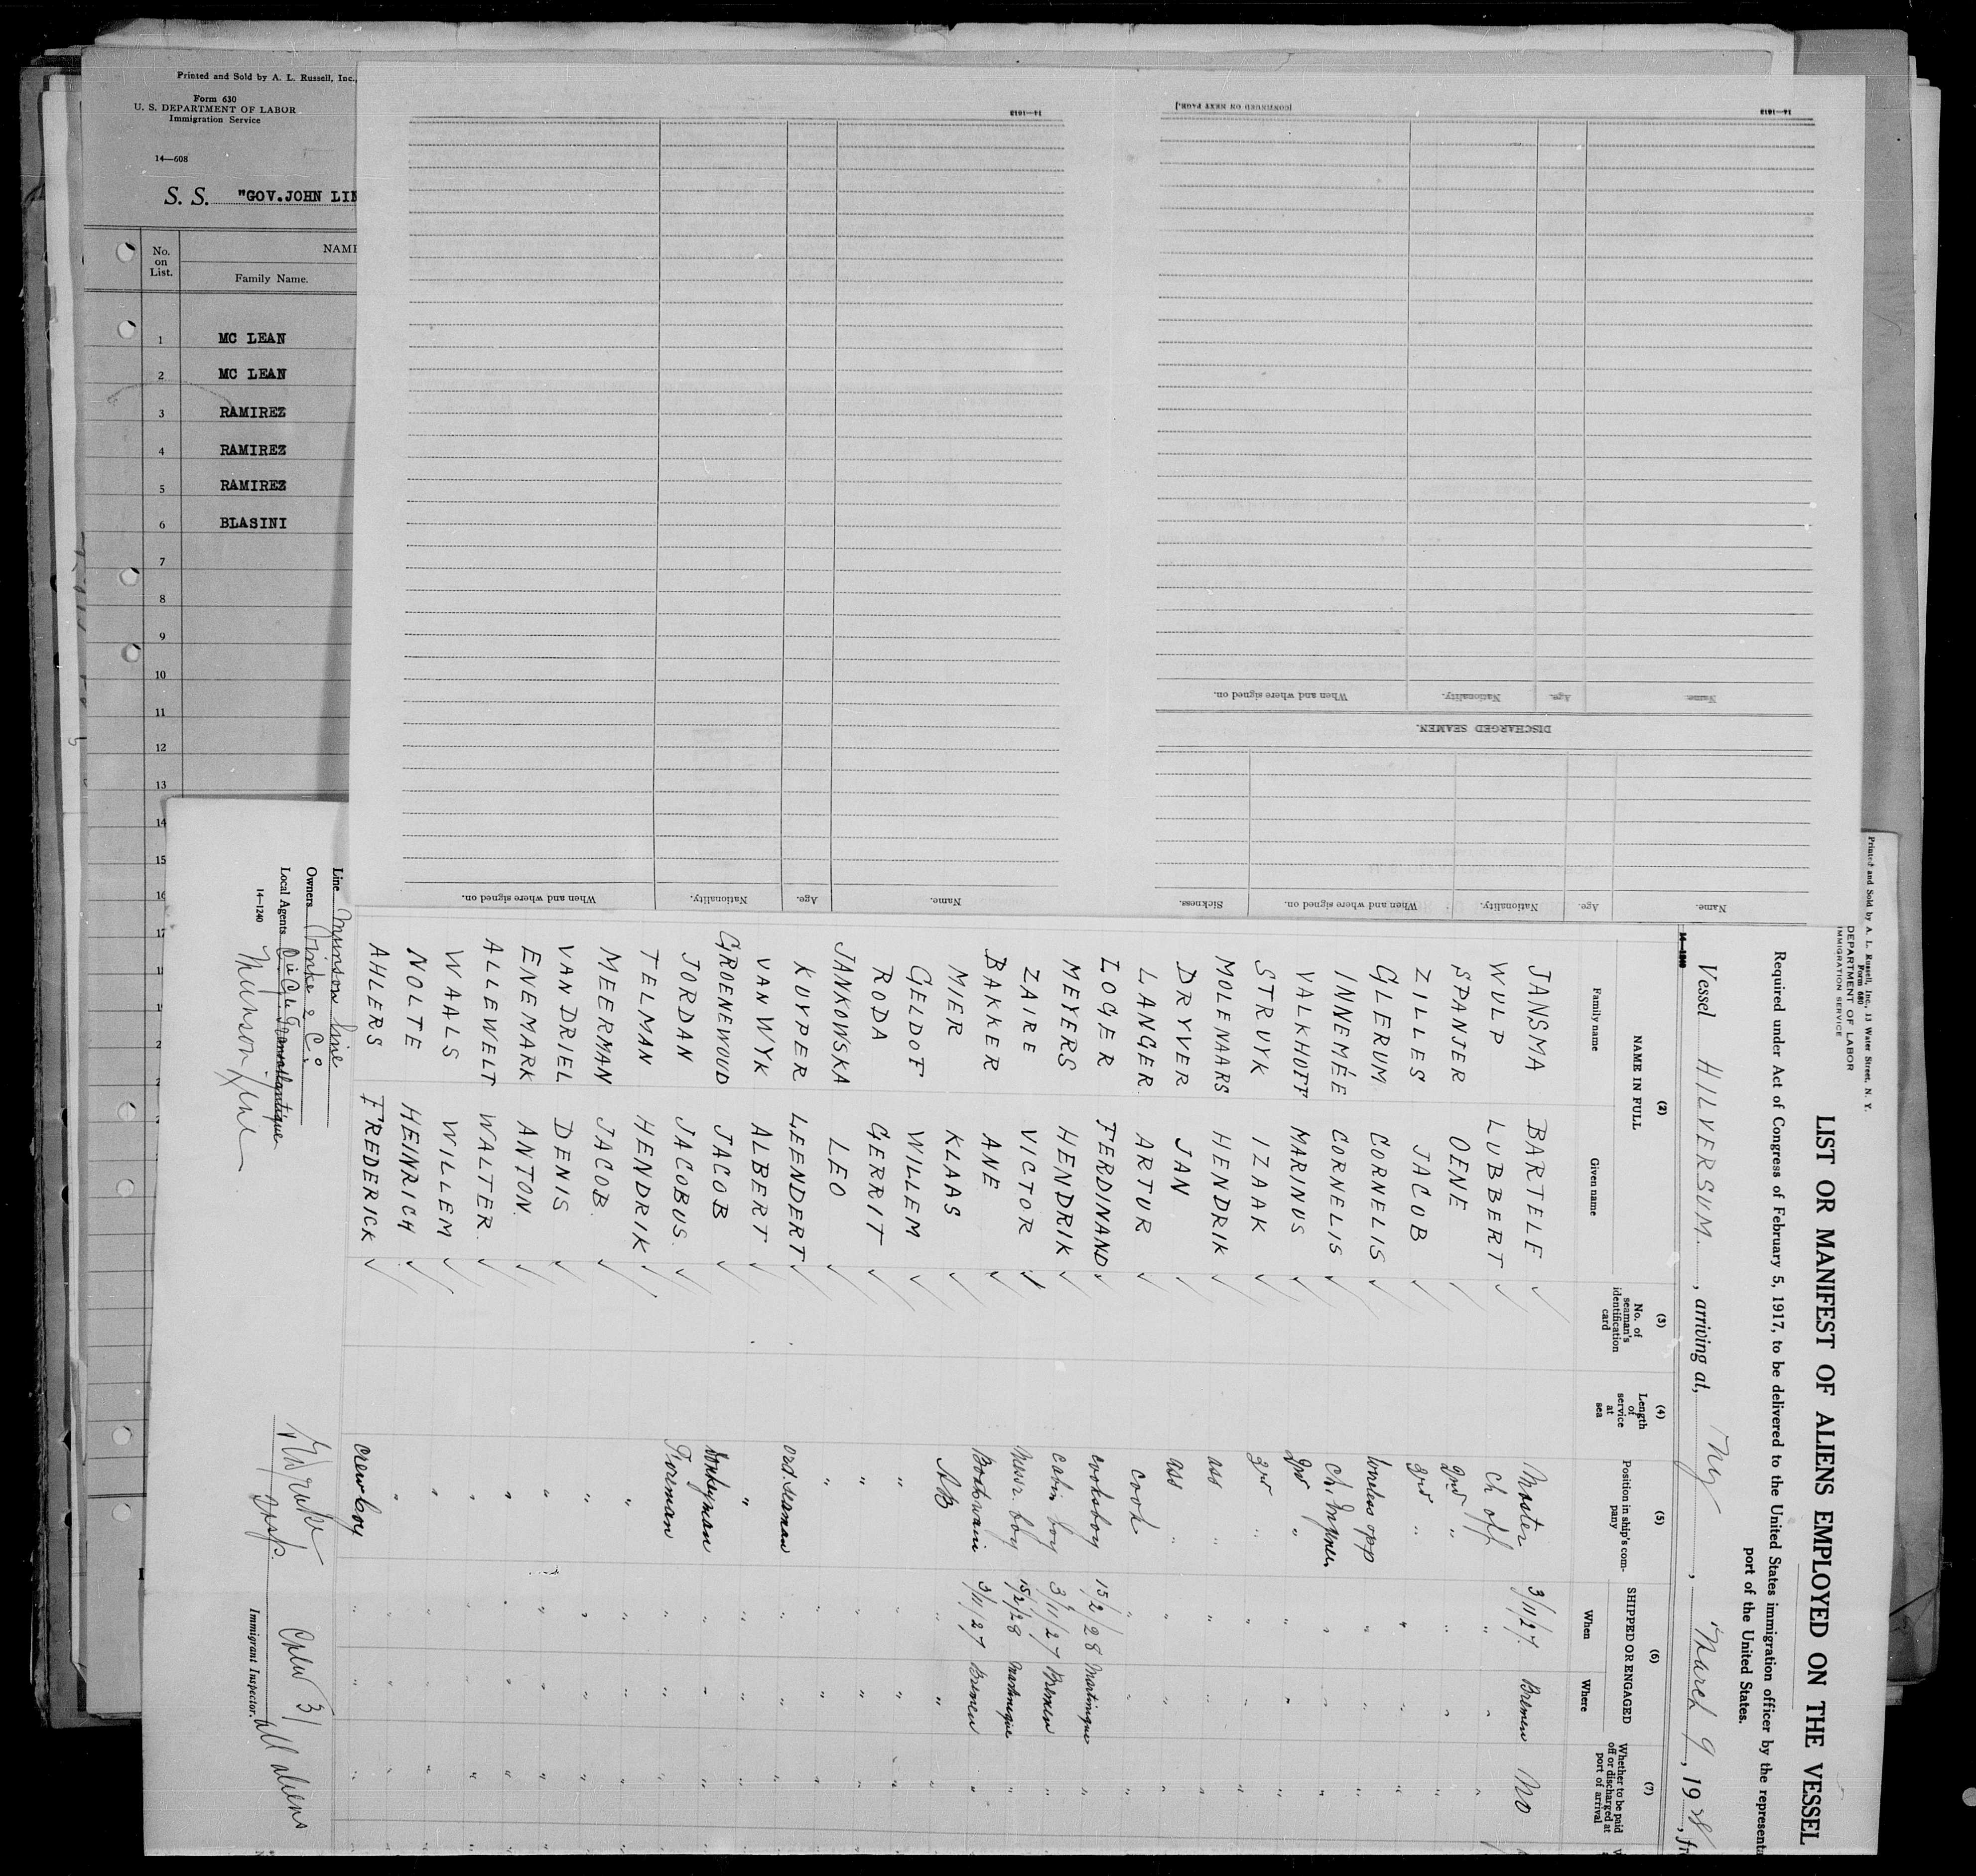 Printed and Sold by A. L. Russell, Inc.,
Form 630
U. S. DEPARTMENT OF LABOR
Immigration Service
14—608
S. S. "GOV.JOHN LIN
No. on List.
NAME
Family Name.
1 MC LEAN
2 MC LEAN
3 RAMIREZ
4 RAMIREZ
5 RAMIREZ
6 BLASINI
7
8
9
10
11
12
13
14
15
16
17
[CONTINUED ON NEXT PAGE.]
14—1613
14—1613
When and where signed on. Nationality. Age. Name.
DISCHARGED SEAMEN.
Sickness. When and where signed on. Nationality. Age. Name.
When and where signed on. Nationality. Age. Name.
Printed and Sold by A. L. Russell, Inc., 13 Water Street, N. Y.
Form 680
DEPARTMENT OF LABOR
IMMIGRATION SERVICE
LIST OR MANIFEST OF ALIENS EMPLOYED ON THE VESSEL
Required under Act of Congress of February 5, 1917, to be delivered to the United States immigration officer by the representa
port of the United States.
Vessel HILVERSUM, arriving at, Ny, March 9, 1928, fr
14—1240
(2) (3) (4) (5) (6) (7)
NAME IN FULL
Family name Given name
No. of seaman's identification card
Length of service at sea
Position in ship's company
SHIPPED OR ENGAGED
When Where
Whether to be paid off or discharged at port of arrival
JANSMA BARTELE Master 3/11/27. Bremen NO
WULP LUBBERT ch off " " "
SPANJER OENE 2nd " " " "
ZILLES JACOB 3rd " " " "
GLERUM CORNELIS wireless opp " " "
INNEMÉE CORNELIS ch. " " "
VALKHOFF MARINUS 2nd " " " "
STRUYK IZAAK 3rd " " " "
MOLENAARS HENDRIK ass " " " "
DRYVER JAN ass " " " "
LANGER ARTUR cook " " "
LOGER FERDINAND cooksboy 15/2/28 Martinique "
MEYERS HENDRIK Cabin boy 3/11/27 Bremen "
ZAIRE VICTOR Messr. boy 15/2/28 Martinique "
BAKKER ANE Bootswain 3/11/27 Bremen "
MIER KLAAS AB " " "
GELDOF WILLEM " " " "
RODA GERRIT " " " "
JANKOWSKA LEO " " " "
KUYPER LEENDERT ord. seaman " " "
VAN WYK ALBERT " " " "
GROENEWOUD JACOB Donkeyman " " "
JORDAN JACOBUS. Fireman " " "
TELMAN HENDRIK " " " "
MEERMAN JACOB. " " " "
VAN DRIEL DENIS " " " "
ENEMARK ANTON. " " " "
ALLEWELT WALTER. " " " "
WAALS WILLEM " " " "
NOLTE HEINRICH " " " "
AHLERS FREDERICK crewboy " " "
Line Munson line
Owners Vinke & Co.
Local Agents
Munson Line
14—1240
Insp.
Immigrant Inspector.
Crew 31
all aliens